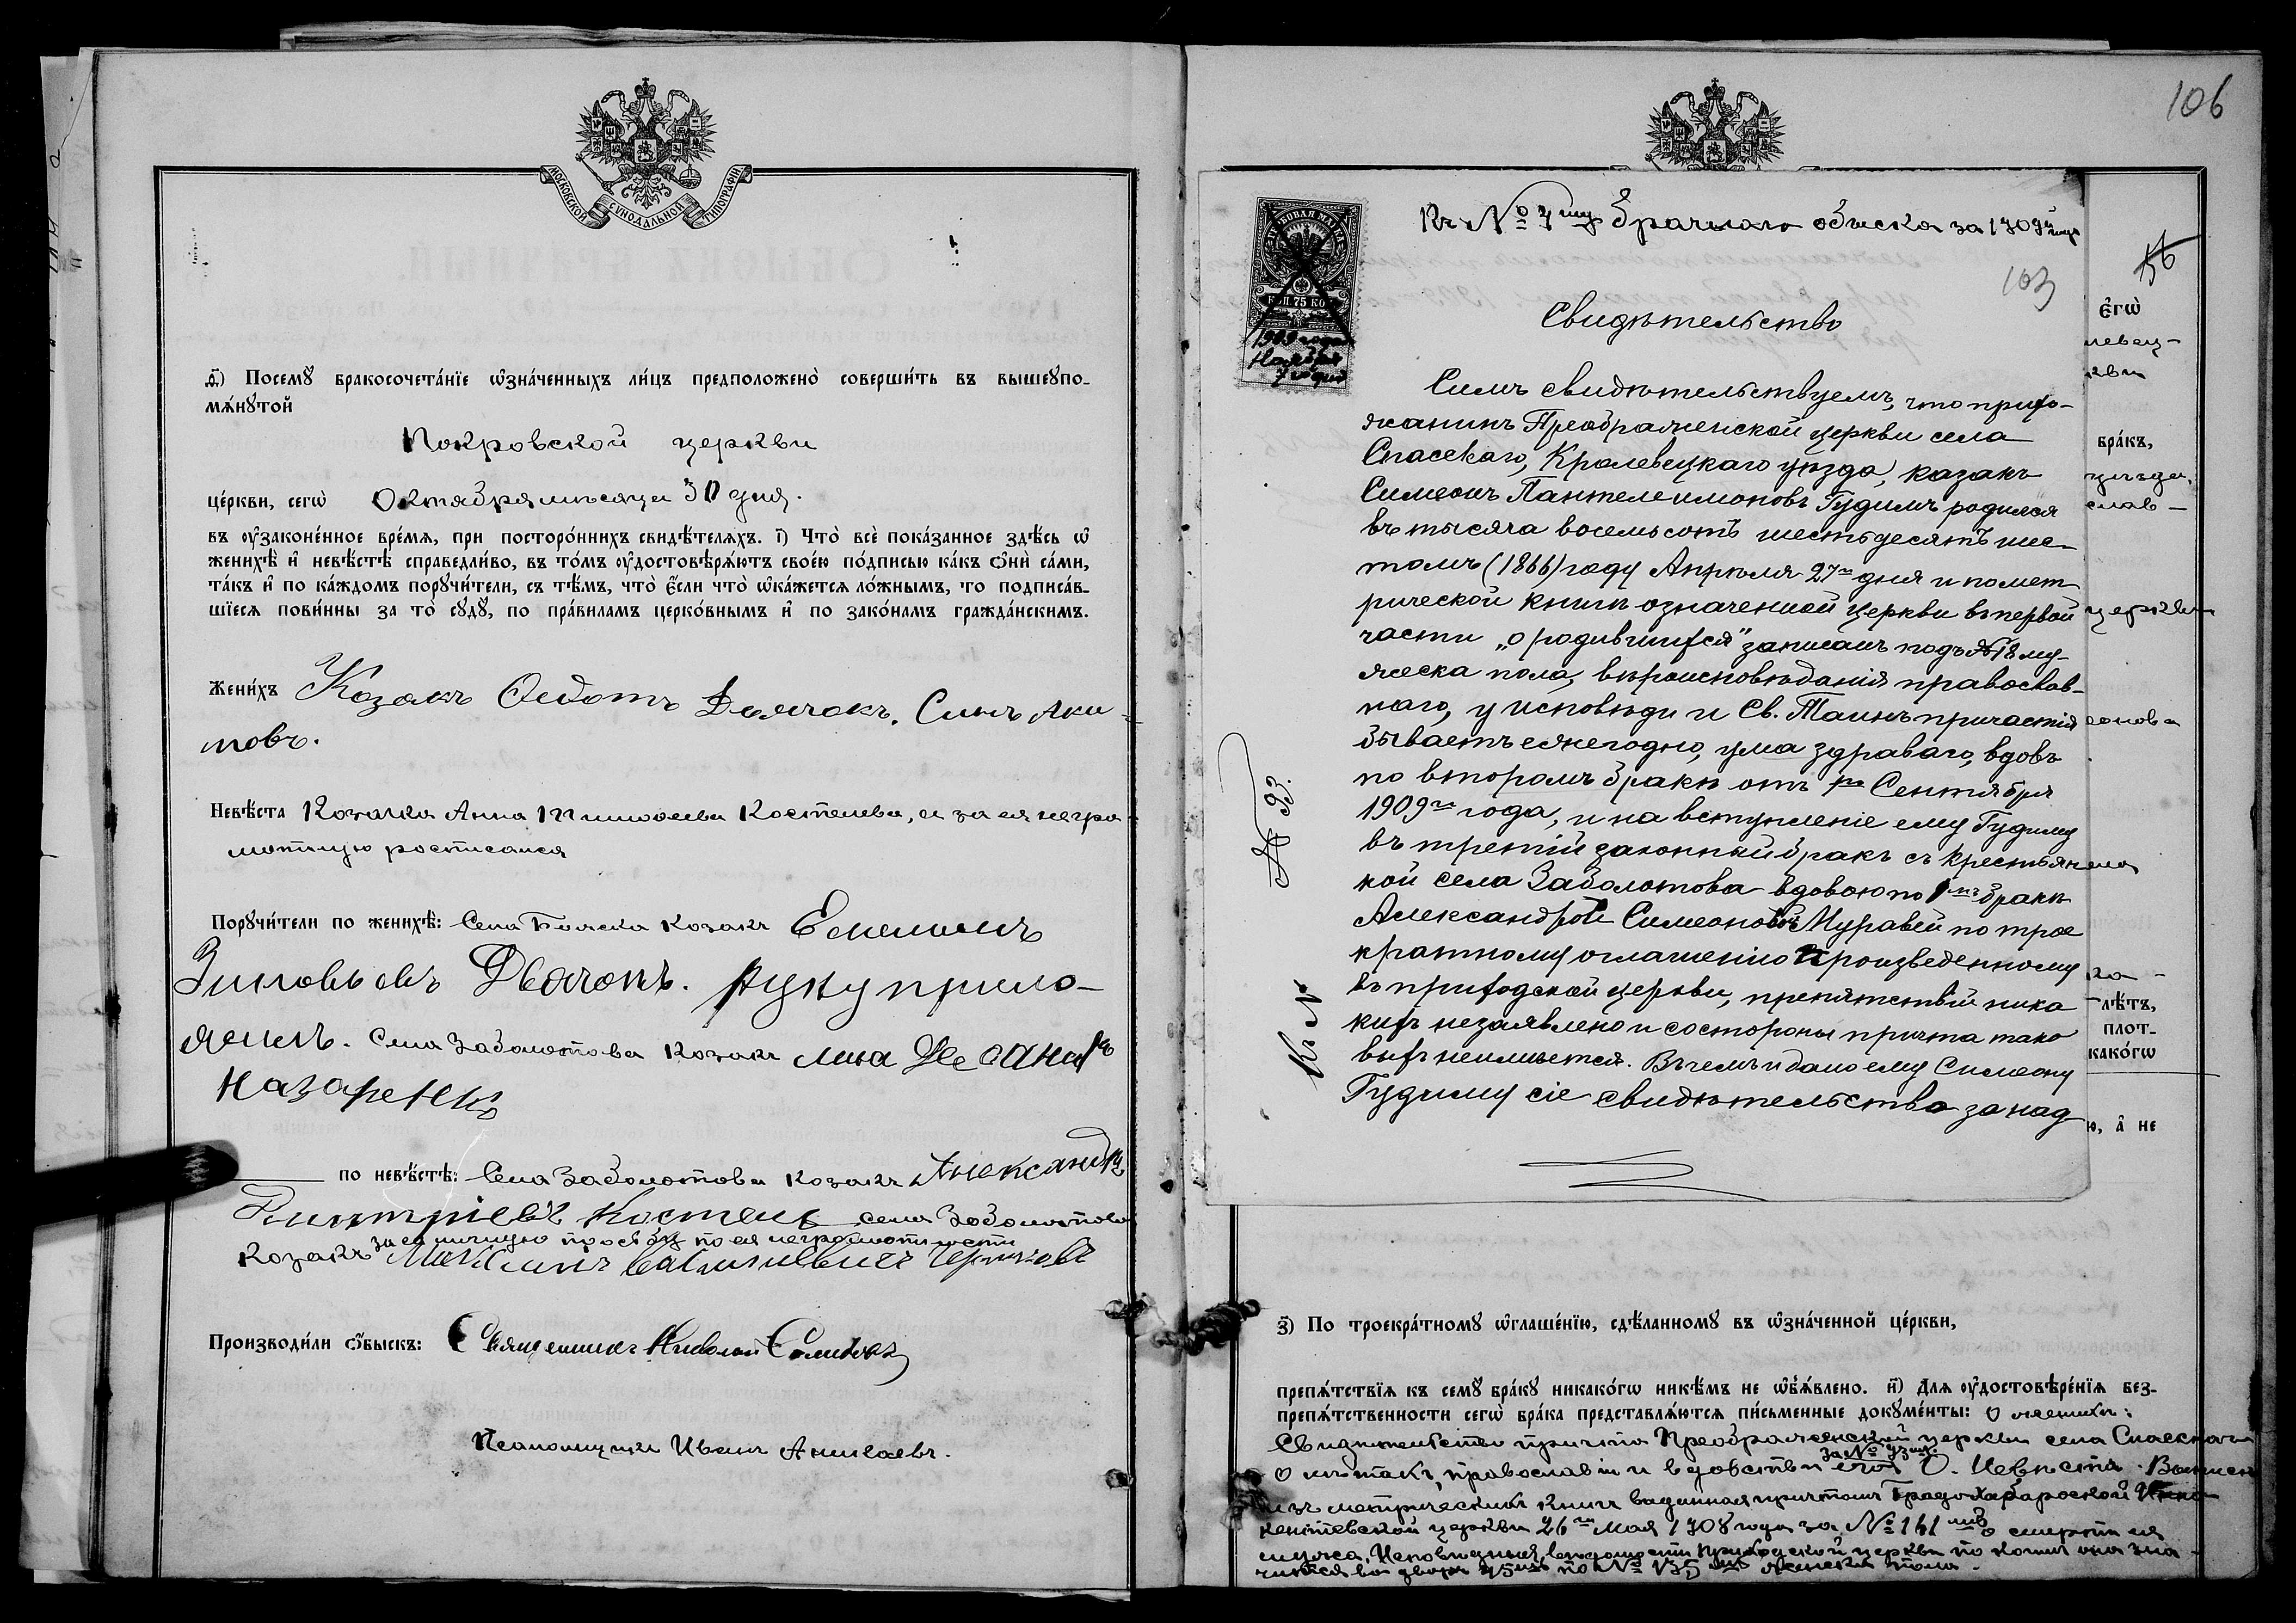 МОСКОВСКОЙ СѴНОДАЛЬНОЙ ТИПОГРАФІИ
д҃і) Посемꙋ бракосочета́нїе ѡзна́ченныхъ ли́цъ предположено̀ соверши́ть въ вышеꙋпо-
мѧ́нꙋтой
Покровской церкви
це́ркви, сегѡ̀ Октября мѣсяца 30 дня.
въ ᲂу҆законе́нное вре́мѧ, при посторо́ннихъ свидѣ́телѧхъ. і҃) Что̀ всѐ пока́занное здѣ́сь ѡ҆
женихѣ̀ и҆ невѣ́стѣ справедли́во, въ то́мъ ᲂу҆достовѣрѧ́ютъ свое́ю по́дписью ка́къ ѻ҆нѝ са́ми,
та́къ и҆ по ка́ждомъ порꙋчи́тели, съ тѣ́мъ, что̀ є҆́сли что̀ ѡ҆ка́жется ло́жнымъ, то подписа́в-
шїеся пови́нны за то̀ сꙋдꙋ̀, по пра́виламъ церко́внымъ и҆ по зако́намъ гражда́нскимъ.
Жени́хъ Козакъ Федотъ Дьячокъ. Сынъ Аки-
мовъ.
Невѣ́ста Козачка Анна Тимофеева Костелева, а за ея негра
мотную росписался
Порꙋчи́тели по женихѣ̀: Села козакъ Емельянъ
Зиновьевъ Дьячокъ. Руку прило-
жилъ. Села Заболотова козакъ
Назаренко
по невѣ́стѣ: Села Заболотова козакъ Александръ
Димтріевъ Костель села Заболотова
за ея личную прозьбу по ея неграмотности
козакъ Максимъ Васильевичъ
Производи́ли ѻ҆́быскъ: Священникъ Николай
Псаломщикъ Иванъ Аникаевъ.
106
Къ № 7му брачнаго обыска за 1909й годъ
103
56
КОП. 75 КОП.
1909 года
Ноября
7 дня
Свидѣтельство
Симъ свидѣтельствуемъ, что прихо-
жанинъ Преображенской церкви села
Спасскаго, Кролевецкаго уѣзда, казакъ
Симеонъ Пантелеимоновъ Гудимъ родился
въ тысяча восемьсотъ шестьдесятъ шес-
томъ (1866) году Апрѣля 27го дня и по мет
рической книгѣ означенной церкви въ первой
части „о родившихся" записанъ подъ № 18 му-
жеска пола, вѣроисповѣданія православ-
наго, у исповѣди и Св. Таинъ причастія
бываетъ ежегодно, ума здраваго, вдовъ
по второмъ бракѣ отъ Сентября
1909го года, и на вступленіе ему Гудиму
въ третій законный бракъ съ крестьянс
кой села Заболотова вдовою по 1мъ бракѣ
Александрой Симеоновой Муравей по трое
кратному оглашенію произведенному
въ приходской церкви, препятствій ника
кихъ незаявлено и состороны причта тако
выхъ неимѣется. Въ чемъ и дано ему Симеону
Гудиму сіе свидѣтельство за над
№ 93.
Къ №
є҆гѡ̀
левец-
кви
бра́къ,
уѣзда,
слав-
церкви
еонова
ела
лѣ́тъ,
плот-
како́гѡ
ю, а҆ не
з҃) По троекра́тномꙋ ѡ҆глаше́нїю, сдѣ́ланномꙋ въ ѡ҆зна́ченной це́ркви,
препѧ́тствїѧ къ семꙋ̀ бра́кꙋ никако́гѡ никѣ́мъ не ѡ҆б̾ѧ́влено. и҃) Длѧ ᲂу҆достовѣре́нїѧ без-
препѧ́тственности сегѡ̀ бра́ка представлѧ́ютсѧ пи́сьменные докꙋме́нты: О женихѣ:
Свидѣтельство причта Преображенской церкви села Спасскаго
за № 93мъ.
о лѣтахъ, православіи и вдовствѣ его. О. Невѣстѣ. Выписи
изъ метрическихъ книгъ выданная причтомъ Градо-Хабаровской Инно-
кентіевской церкви 26го Мая 1908 года за № 161мъ о смерти ея
мужа. Исповѣдныя вѣдомости приходской церкви по коимъ она зна-
чится во дворѣ 45мъ по № 135мъ женска пола.